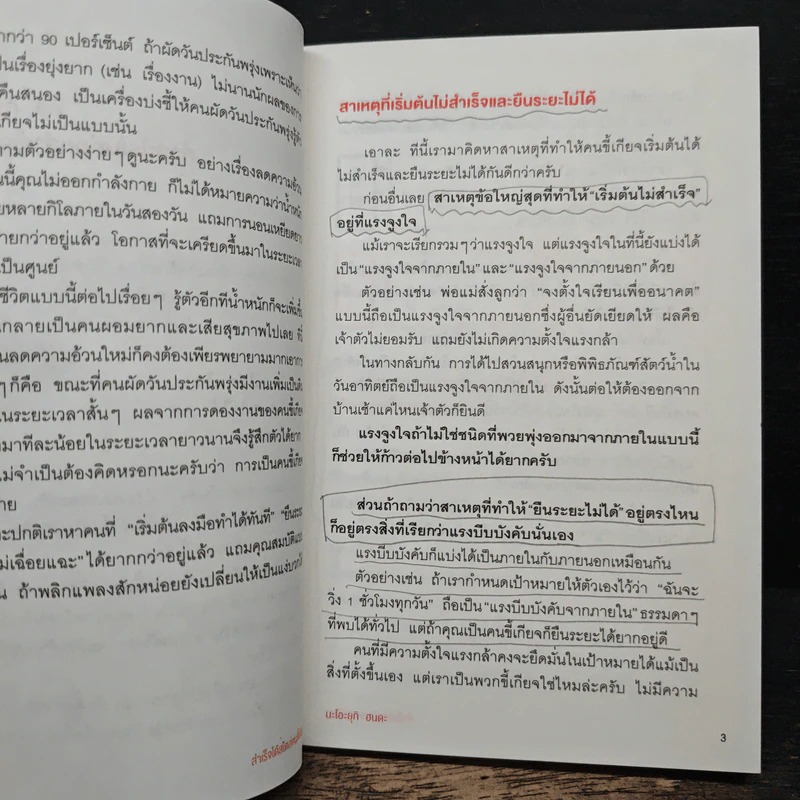 ากกว่า 90 เปอร์เซ็นต์ ถ้าผัดวันประกันพรุ่งเพราะเห็นว่า
ป็นเรื่องยุ่งยาก (เช่น เรื่องงาน) ไม่นานนักผลของการ
คืนสนอง เป็นเครื่องบ่งชี้ให้คนผัดวันประกันพรุ่งรู้ตัว
กียจไม่เป็นแบบนั้น
ามตัวอย่างง่ายๆดูนะครับ อย่างเรื่องลดความอ้วน
นนี้คุณไม่ออกกำลังกาย ก็ไม่ได้หมายความว่าน้ำหนัก
ยหลายกิโลภายในวันสองวัน แถมการนอนเหยียดยาว
ายกว่าอยู่แล้ว โอกาสที่จะเครียดขึ้นมาในระยะเวลา
เป็นศูนย์
ชีวิตแบบนี้ต่อไปเรื่อยๆ รู้ตัวอีกทีน้ำหนักก็จะเพิ่มขึ้น
กลายเป็นคนผอมยากและเสียสุขภาพไปเลย ที่
นลดความอ้วนใหม่ก็คงต้องเพียรพยายามมากเอาการ
ๆก็คือ ขณะที่คนผัดวันประกันพรุ่งมีงานเพิ่มเป็น
นระยะเวลาสั้นๆ ผลจากการดองงานของคนขี้เกีย
มาทีละน้อยในระยะเวลายาวนานจึงรู้สึกตัวได้ยาก
ม่จำเป็นต้องคิดหรอกนะครับว่า การเป็นคนขี้เกีย
าย
ะปกติเราหาคนที่ “เริ่มต้นลงมือทำได้ทันที” “ยืนระยะ
ม่เฉื่อยแฉะ” ได้ยากกว่าอยู่แล้ว แถมคุณสมบัติ
น ถ้าพลิกแพลงสักหน่อยยังเปลี่ยนให้เป็นแง่บวกได้
สาเหตุที่เริ่มต้นไม่สำเร็จและยืนระยะไม่ได้
เอาละ ทีนี้เรามาคิดหาสาเหตุที่ทำให้คนขี้เกียจเริ่มต้นได้
ไม่สำเร็จและยืนระยะไม่ได้กันดีกว่าครับ
ก่อนอื่นเลย สาเหตุข้อใหญ่สุดที่ทำให้ “เริ่มต้นไม่สำเร็จ”
อยู่ที่แรงจูงใจ
แม้เราจะเรียกรวมๆว่าแรงจูงใจ แต่แรงจูงใจในที่นี้ยังแบ่งได้
เป็น “แรงจูงใจจากภายใน” และ “แรงจูงใจจากภายนอก” ด้วย
ตัวอย่างเช่น พ่อแม่สั่งลูกว่า “จงตั้งใจเรียนเพื่ออนาคต”
แบบนี้ถือเป็นแรงจูงใจจากภายนอกซึ่งผู้อื่นยัดเยียดให้ ผลคือ
เจ้าตัวไม่ยอมรับ แถมยังไม่เกิดความตั้งใจแรงกล้า
ในทางกลับกัน การได้ไปสวนสนุกหรือพิพิธภัณฑ์สัตว์น้ำใน
วันอาทิตย์ถือเป็นแรงจูงใจจากภายใน ดังนั้นต่อให้ต้องออกจาก
บ้านเช้าแค่ไหนเจ้าตัวก็ยินดี
แรงจูงใจถ้าไม่ใช่ชนิดที่พวยพุ่งออกมาจากภายในแบบนี้
ก็ช่วยให้ก้าวต่อไปข้างหน้าได้ยากครับ
ส่วนถ้าถามว่าสาเหตุที่ทำให้ “ยืนระยะไม่ได้” อยู่ตรงไหน
ก็อยู่ตรงสิ่งที่เรียกว่าแรงบีบบังคับนั่นเอง
แรงบีบบังคับก็แบ่งได้เป็นภายในกับภายนอกเหมือนกัน
ตัวอย่างเช่น ถ้าเรากำหนดเป้าหมายให้ตัวเองไว้ว่า “ฉันจะ
วิ่ง 1 ชั่วโมงทุกวัน” ถือเป็น “แรงบีบบังคับจากภายใน” ธรรมดาๆ
ที่พบได้ทั่วไป แต่ถ้าคุณเป็นคนขี้เกียจก็ยืนระยะได้ยากอยู่ดี
คนที่มีความตั้งใจแรงกล้าคงจะยึดมั่นในเป้าหมายได้แม้เป็น
สิ่งที่ตั้งขึ้นเอง แต่เราเป็นพวกขี้เกียจใช่ไหมล่ะครับ ไม่มีความ
นะโอะยุกิ ฮนดะ
3